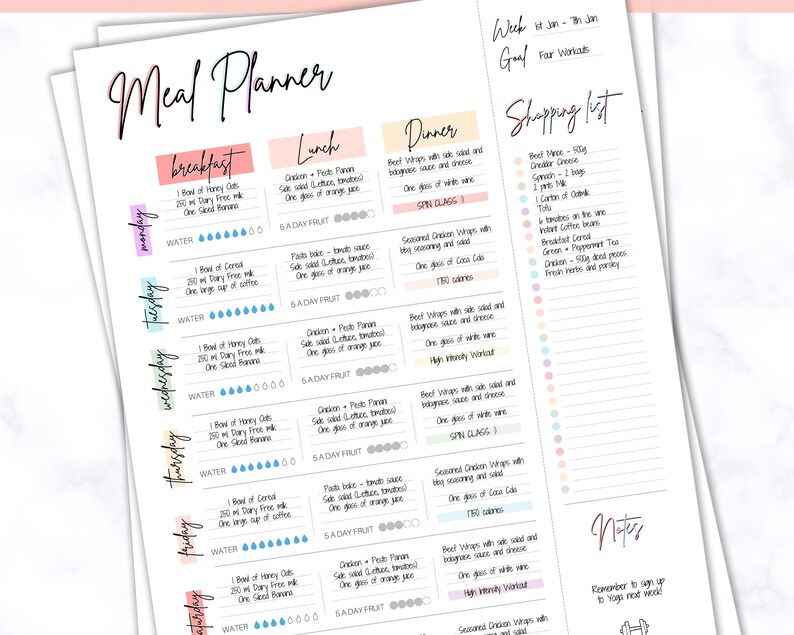 Meal Planner
Week 1st Jan - 7th Jan
Goal Four Workouts
breakfast
Lunch
Dinner
monday
1 Bowl of Honey Oats
250 ml Dairy Free milk
One Sliced Banana
WATER
Chicken + Pesto Panani
Side salad (Lettuce, tomatoes)
One glass of orange juice
5 A DAY FRUIT
Beef Wraps with side salad and
bolognase sauce and cheese
One glass of white wine
SPIN CLASS :)
tuesday
1 Bowl of Cereal
250 ml Dairy Free milk
One large cup of coffee
WATER
Pasta bake - tomato sauce
Side salad (Lettuce, tomatoes)
One glass of orange juice
5 A DAY FRUIT
Seasoned Chicken Wraps with
bbq seasoning and salad
One glass of Coca Cola
1750 calories
wednesday
1 Bowl of Honey Oats
250 ml Dairy Free milk
One Sliced Banana
WATER
Chicken + Pesto Panani
Side salad (Lettuce, tomatoes)
One glass of orange juice
5 A DAY FRUIT
Beef Wraps with side salad and
bolognase sauce and cheese
One glass of white wine
High Intensity Workout
thursday
1 Bowl of Honey Oats
250 ml Dairy Free milk
One Sliced Banana
WATER
Chicken + Pesto Panani
Side salad (Lettuce, tomatoes)
One glass of orange juice
5 A DAY FRUIT
Beef Wraps with side salad and
bolognase sauce and cheese
One glass of white wine
SPIN CLASS :)
friday
1 Bowl of Cereal
250 ml Dairy Free milk
One large cup of coffee
WATER
Pasta bake - tomato sauce
Side salad (Lettuce, tomatoes)
One glass of orange juice
5 A DAY FRUIT
Seasoned Chicken Wraps with
bbq seasoning and salad
One glass of Coca Cola
1750 calories
saturday
1 Bowl of Honey Oats
250 ml Dairy Free milk
One Sliced Banana
WATER
Chicken + Pesto Panani
Side salad (Lettuce, tomatoes)
One glass of orange juice
5 A DAY FRUIT
Beef Wraps with side salad and
bolognase sauce and cheese
One glass of white wine
High Intensity Workout
1 Bowl of Cereal
Pasta bake - tomato sauce
Seasoned Chicken Wraps with
Shopping list
Beef Mince - 500g
Cheddar Cheese
Spinach - 2 bags
2 pints Milk
1 Carton of Oatmilk
Tofu
6 tomatoes on the vine
Instant Coffee beans
Breakfast Cereal
Green + Peppermint Tea
Chicken - 500g diced pieces
Fresh herbs and parsley
Notes
Remember to sign up
to Yoga next week!